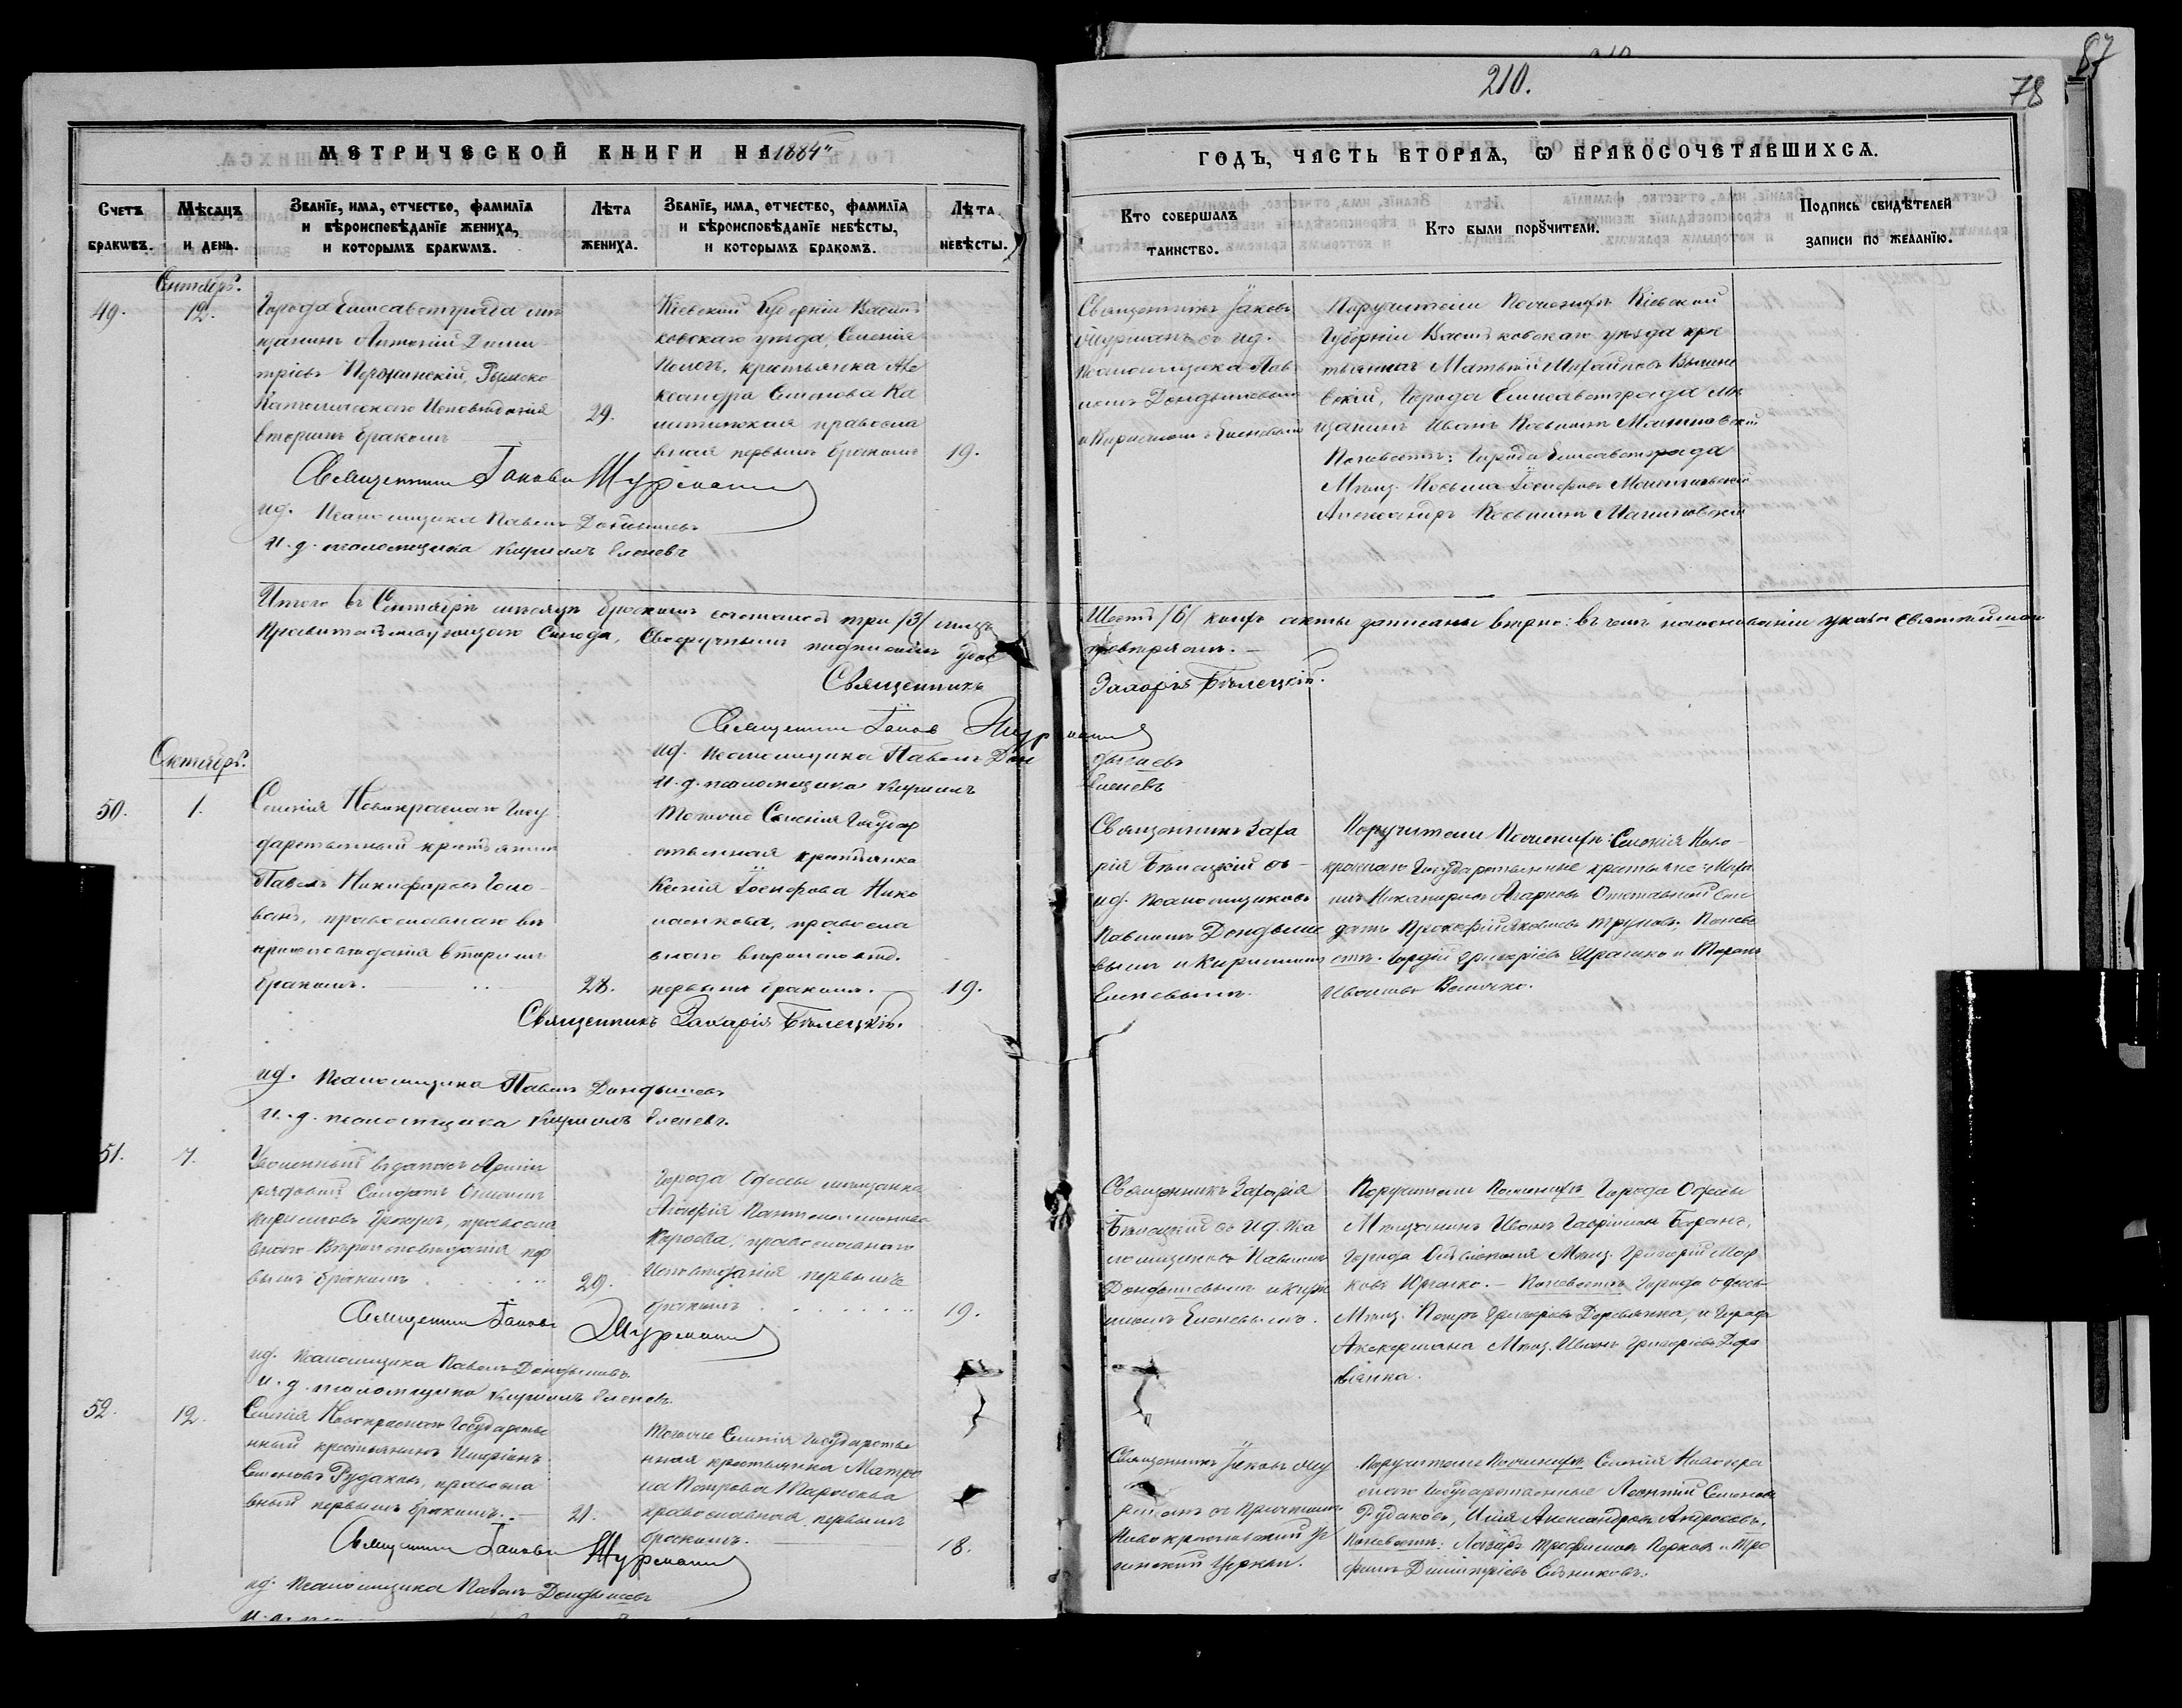 210.
78
87
МЕТРИЧЕСКОЙ КНИГИ НА 1884й
ГОДЪ, ЧАСТЬ ВТОРАЯ, Ѡ БРАКОСОЧЕТАВШИХСЯ.
Счетъ браковъ.
Мѣсяцъ и день.
Званіе, имя, отчество, фамилія
и вѣроисповѣданіе жениха,
и которымъ бракомъ.
Лѣта жениха.
Званіе, имя, отчество, фамилія
и вѣроисповѣданіе невѣсты,
и которымъ бракомъ.
Лѣта невѣсты.
Кто совершалъ
таинство.
Кто были порꙋчители.
Подпись свидѣтелей
записи по желанію.
Сентябрь.
49.
12.
Города Елисаветграда мѣ
щанинъ Антоній Дими
тріевъ Римско
Католическаго Исповѣданія
вторымъ бракомъ
29.
Кіевской Губерніи Василь
ковскаго уѣзда, Селенія
крестьянка Але
ксандра Семенова Ка
правосла
вная первымъ бракомъ
19.
Священникъ Іаковъ
Мурманъ съ ид.
псаломщика Пав
ломъ Дондышевымъ
и Кириломъ Еленевымъ
Поручители По женихѣ Кіевской
Губерніи Васильковскаго уѣзда кре
стьянинъ Матвѣй Михайловъ Вишне
вскій, Города Елисаветграда мѣ
щанинъ Иванъ Косьминъ
По невѣстѣ: Города Елисаветграда
Мѣщ. Косьма Іосифовъ
Александръ Косьминъ
Священникъ Іаковъ Мурманъ
ид. Псаломщика Павелъ Дондышевъ
и. д. псаломщика Кирилъ Еленевъ
Итого въ Сентябрѣ мѣсяцѣ бракомъ сочталось три /3/ лицъ
Шесть /6/ коихъ акты записаны вѣрно: въ чемъ на основаніи указа Святѣйшаго
Правительствующаго Синода, Своеручнымъ подписомъ удос
товѣряемъ.
Священникъ Захарія Бѣлецкій.
Священникъ Іаковъ Мурманъ
ид. Псаломщика Павелъ Дондышевъ
и. д. псаломщика Кирилъ Еленевъ
Октябрь.
50.
1.
Селенія Новокраснаго Госу
дарственный крестьянинъ
Павелъ Никифоровъ Голо
вань, православнаго вѣ
роисповѣданія вторымъ
бракомъ.
28.
Тогоже Селенія Государ
ственная крестьянка
Ксенія Іосифова Нико
лаенкова, правосла
внаго вѣроисповѣд.
первымъ бракомъ.
19.
Священникъ Заха
рія Бѣлецкій съ
ид. псаломщиковъ
Павломъ Дондыше
вымъ и Кириломъ
Еленевымъ.
Поручители По женихѣ: Селенія Ново-
краснаго Государственные крестьяне:
Никаноровъ Отставной сол
датъ Прокофій Яковлевъ Труновъ, По невѣ
стѣ. Гордій Григоріевъ и
Ивановъ
Священникъ Захарія Бѣлецкій.
ид. Псаломщика Павелъ Дондышевъ
и. д. псаломщика Кирилъ Еленевъ.
51.
7.
Уволенный въ запасъ Арміи
рядовой Солдатъ
Кириловъ правосла
внаго Вѣроисповѣданія пер
вымъ бракомъ
29.
Города Одессы мѣщанка
Агафія Пантелеимонова
православнаго
Исповѣданія первымъ
бракомъ
19.
Священникъ Захарія
Бѣлецкій съ ид. пса
ломщиковъ Павломъ
Дондышевымъ и Кири
ломъ Еленевымъ.
Поручители По женихѣ Города Одессы
Мѣщанинъ Иванъ Гавріиловъ Баранъ,
Города Мѣщ. Григорій
По невѣстѣ Города Одессы
Мѣщ. Петръ Григоріевъ и Города
Аккермана Мѣщ. Иванъ Григоріевъ
Священникъ Іаковъ Мурманъ
ид. Псаломщика Павелъ Дондышевъ
и. д. псаломщика Кирилъ Еленевъ.
52.
12.
Селенія Новокраснаго Государстве
нный крестьянинъ
Семеновъ Рудаковъ, правосла
вный первымъ бракомъ.
21.
Тогоже Селенія Государстве
нная крестьянка Матро
на Петрова Тарасова
православная первымъ
бракомъ.
18.
Священникъ Іаковъ Му
рманъ съ причтомъ
Новокрасновской
Церкви.
Поручители По женихѣ Селенія Новокра
снаго Государственные Леонтій Семеновъ
Рудаковъ, Илія Александровъ
По невѣстѣ: Лазарь Трофимовъ и Тро
фимъ Димитріевъ
Священникъ Іаковъ Мурманъ
ид. Псаломщика Павелъ Дондышевъ